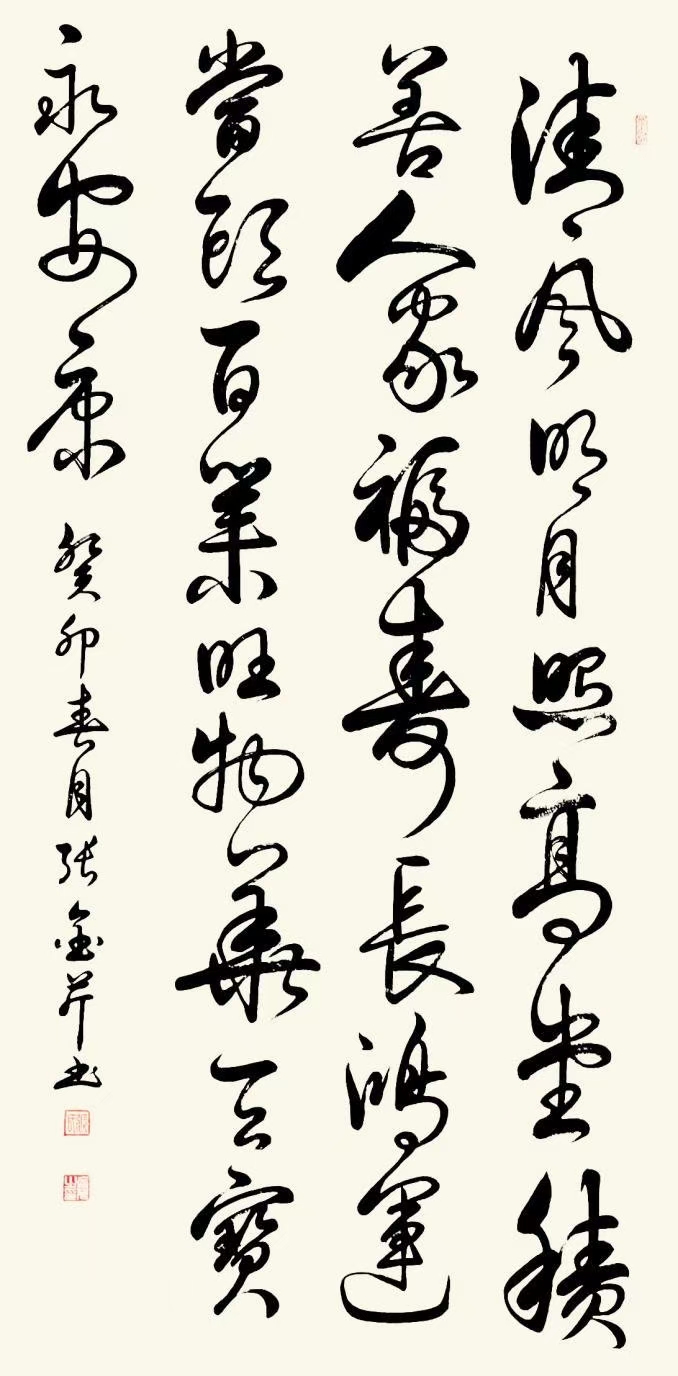 清风明月照高堂積
善人家福寿長鴻運
當頭百業旺物華天寶
永安康
癸卯春月张金芹书